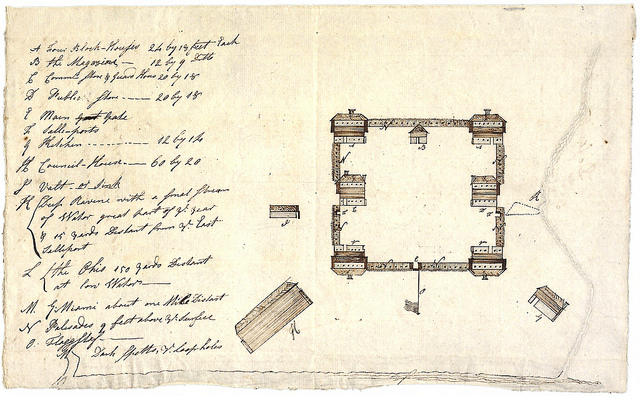 A Four Block-Houses 24 by 18 feet Each
B the Magazine — 12 by 9 Ditto
C Comms. Store & Guard House 20 by 18
D Public Store — 20 by 18
E Main Gate
F Salleports
G Kitchen — 12 by 14
H Council-House — 60 by 20
K Deep Ravine with a small Stream
of Water great part of ye. year
15 yards Distant from ye. East
Salleport
L the Ohio 150 yards Distant
at low Water
M. G. Miami about one Mile Distant
N Palisades 9 feet above ye. Surface
O. Flagg Staff
Dark Spotts, ye. Loop holes